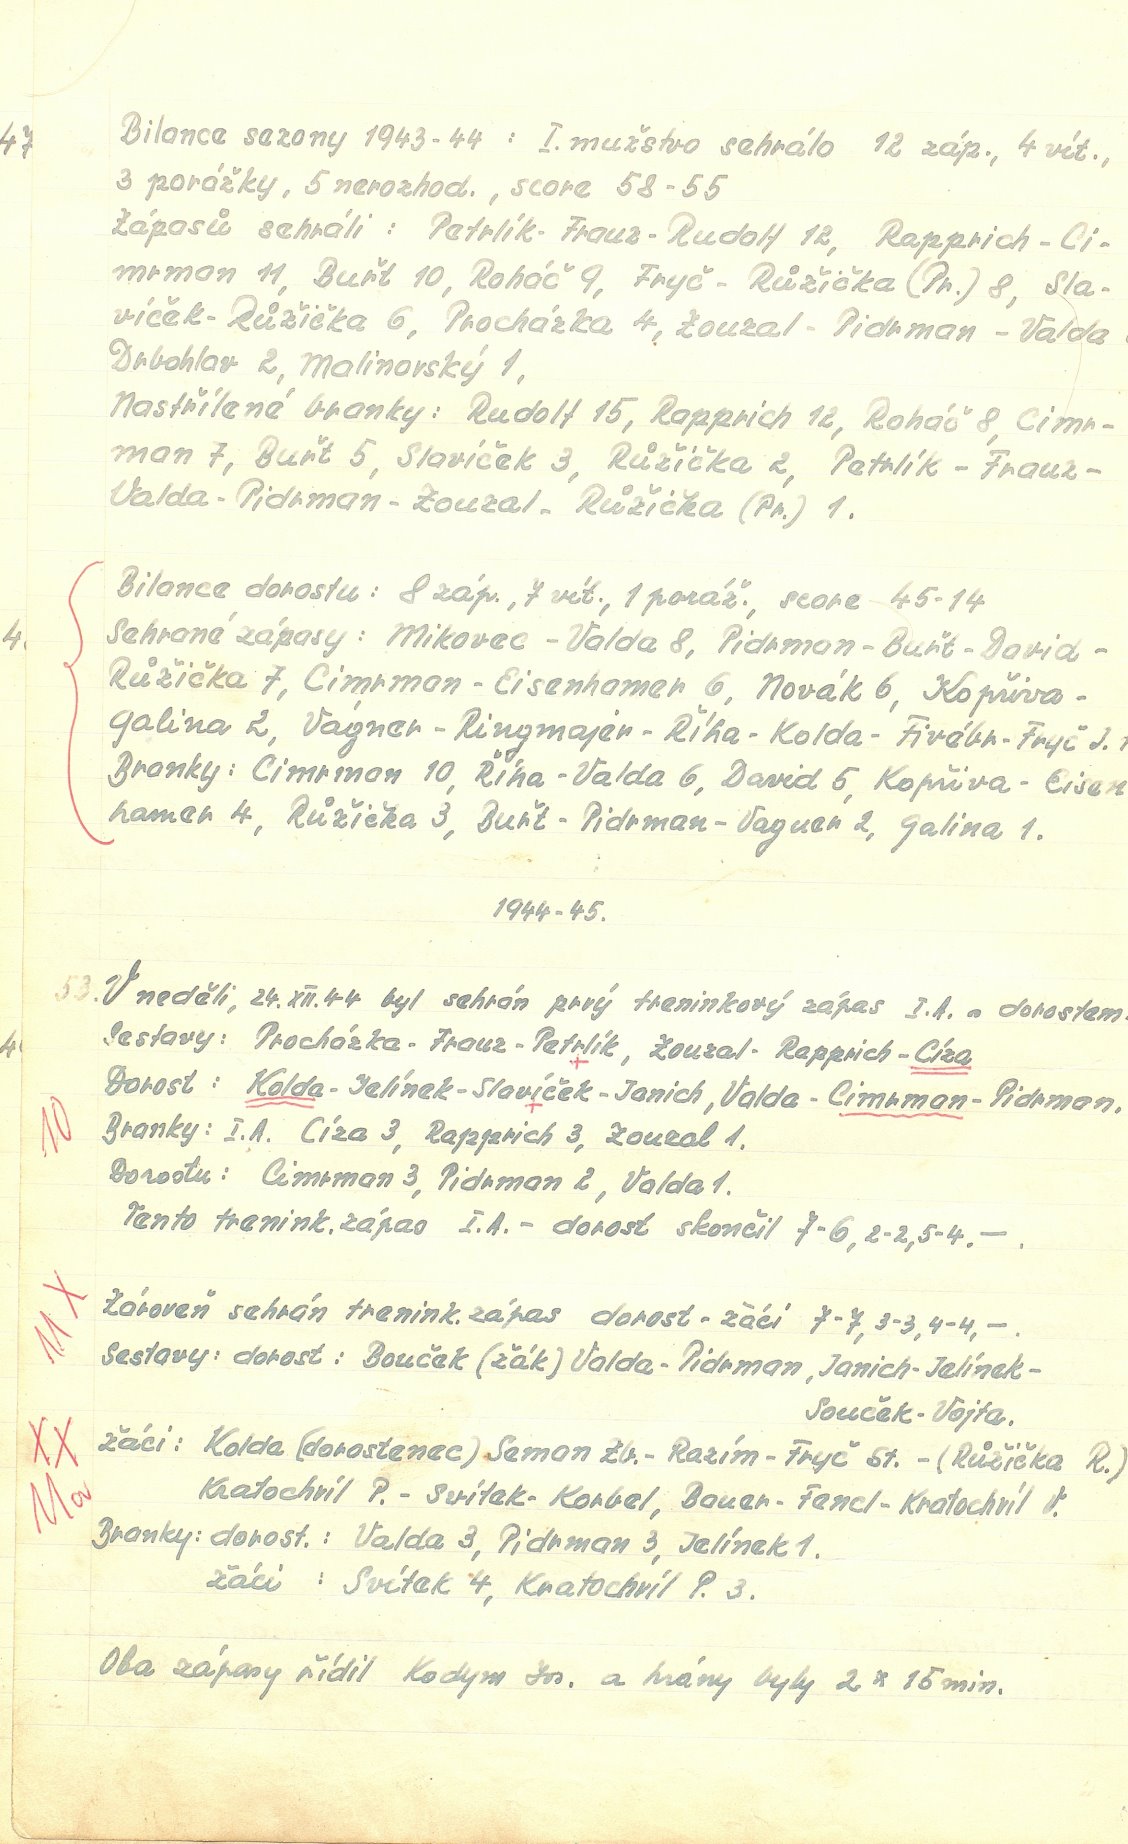 47 Bilance sezony 1943-44 : I. mužstvo sehrálo 12 záp., 4 vít.,
3 porážky, 5 nerozhod., score 58-55
Zápasů sehráli : Petrlík - Franz - Rudolf 12, Rapprich - Ci-
mrman 11, Buřt 10, Roháč 9, Fryč - Růžička (Pr.) 8, Sla-
víček - Růžička 6, Procházka 4, Zouzal - Pidrman - Valda
Drbohlav 2, Malinovský 1,
Nastřílené branky : Rudolf 15, Rapprich 12, Roháč 8, Cimr-
man 7, Buřt 5, Slavíček 3, Růžička 2, Petrlík - Franz -
Valda - Pidrman - Zouzal - Růžička (Pr.) 1.
Bilance dorostu : 8 záp., 7 vít., 1 poráž., score 45-14
4 Sehrané zápasy : Mikovec - Valda 8, Pidrman - Buřt - David -
Růžička 7, Cimrman - Eisenhamer 6, Novák 6, Kopřiva -
Galina 2, Vágner - Ringmajer - Říha - Kolda - Fivébr - Fryč J. 1
Branky : Cimrman 10, Říha - Valda 6, David 5, Kopřiva - Eisen
hamer 4, Růžička 3, Buřt - Pidrman - Vagner 2, Galina 1.
1944-45.
53. V neděli, 24.XII.44 byl sehrán prvý treninkový zápas I.A. s dorostem.
4 Sestavy : Procházka - Franz - Petrlík, Zouzal - Rapprich - Cíza
Dorost : Kolda - Jelínek - Slavíček - Janich, Valda - Cimrman - Pidrman.
10 Branky : I.A. Cíza 3, Rapprich 3, Zouzal 1.
Dorostu : Cimrman 3, Pidrman 2, Valda 1.
Tento trenink. zápas I.A. - dorost skončil 7-6, 2-2, 5-4. — .
11 X Zároveň sehrán trenink. zápas dorost - žáci 7-7, 3-3, 4-4, — .
Sestavy : dorost : Bouček (žák) Valda - Pidrman, Janich - Jelínek -
Souček - Vojta.
XX žáci : Kolda (dorostenec) Seman Zb. - Razím - Fryč St. - (Růžička R.)
11a Kratochvíl P. - Svítek - Korbel, Bauer - Fencl - Kratochvíl V.
Branky : dorost. : Valda 3, Pidrman 3, Jelínek 1.
žáci : Svítek 4, Kratochvíl P. 3.
Oba zápasy řídil Kodym Jos. a hrány byly 2 x 15 min.